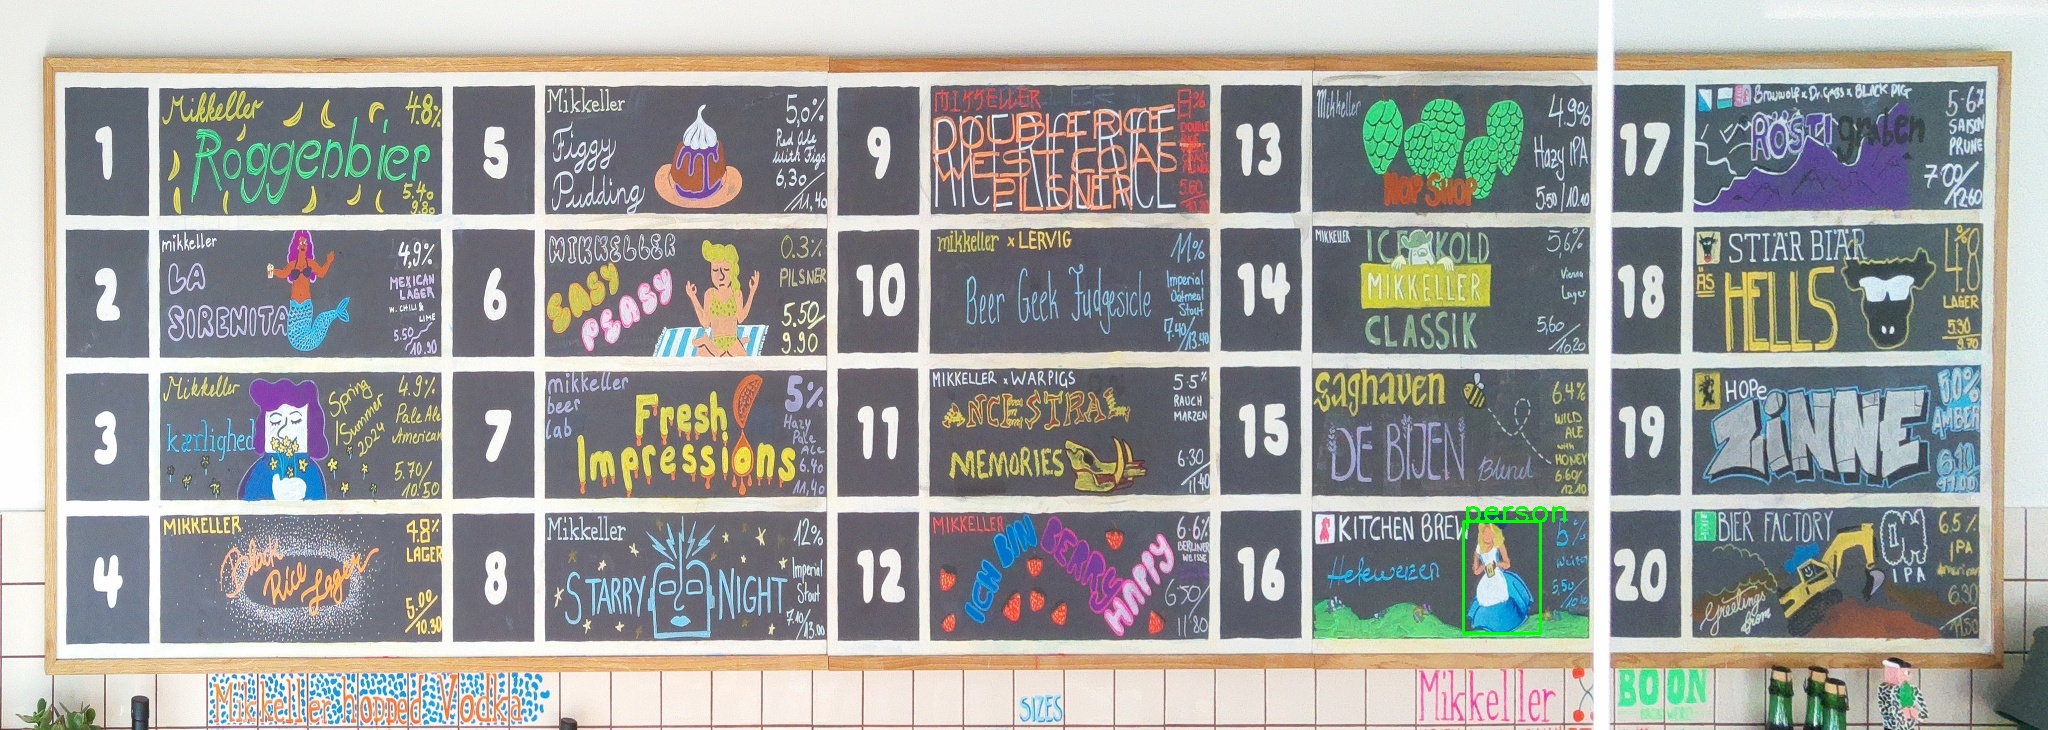 1
Mikkeller
4.8%
Roggenbier
5.40
9.80
2
mikkeller
4,9%
LA
SIRENITA
MEXICAN
LAGER
W. CHILI &
LIME
5.50/
10.90
3
Mikkeller
kærlighed
Spring
/Summer
2024
4.9%
Pale Ale
American
5.70/
10.50
4
MIKKELLER
4.8%
LAGER
Black
Rice
Lager
5.00/
10.30
5
Mikkeller
5,0%
Figgy
Pudding
Red Ale
With Figs
6,30/
11,40
6
MIKKELLER
0.3%
PILSNER
EASY
PEASY
5.50/
9.90
7
mikkeller
beer
lab
Fresh
Impressions
5%
Hazy
Pale
Ale
6.40
11,40
8
Mikkeller
12%
STARRY NIGHT
Imperial
Stout
7.10/
13.00
9
MIKKELLER
PILSNER
10
mikkeller x LERVIG
11%
Beer Geek Fudgesicle
Imperial
Oatmeal
Stout
7.40/13.40
11
MIKKELLER x WARPIGS
5.5%
RAUCH
MARZEN
ANCESTRAL
MEMORIES
6.30/
11.40
12
MIKKELLER
6.6%
BERLINER
WEISSE
ICH BIN BERRY HAPPY
6.50/
11.80
13
Mikkeller
4.9%
Hazy IPA
HOP SHOP
5.50/10.10
14
MIKKELLER
ICENKOLD
MIKKELLER
CLASSIK
5,6%
Vienna
Lager
5,60/
10,20
15
Eaghaven
DE BIJEN Blend
6.4%
WILD
ALE
with
HONEY
6.60/
12.10
16
KITCHEN BREW
Hefeweizen
5,50/
person
17
Brauwolf x Dr. Gabs x BLACK PIG
RÖSTIgraben
5.6%
SAISON
PRUNE
7.00/
12.60
18
STIÄR BIÄR
HELLS
4.8%
LAGER
5.30
9.70
19
HOPe
ZiNNE
5.0%
AMBER
6.10
11.00
20
BIER FACTORY
IPA
Greetings
from
6.5%
IPA
American
6.30
11.50
Mikkeller hopped Vodka
SIZES
Mikkeller
BOON